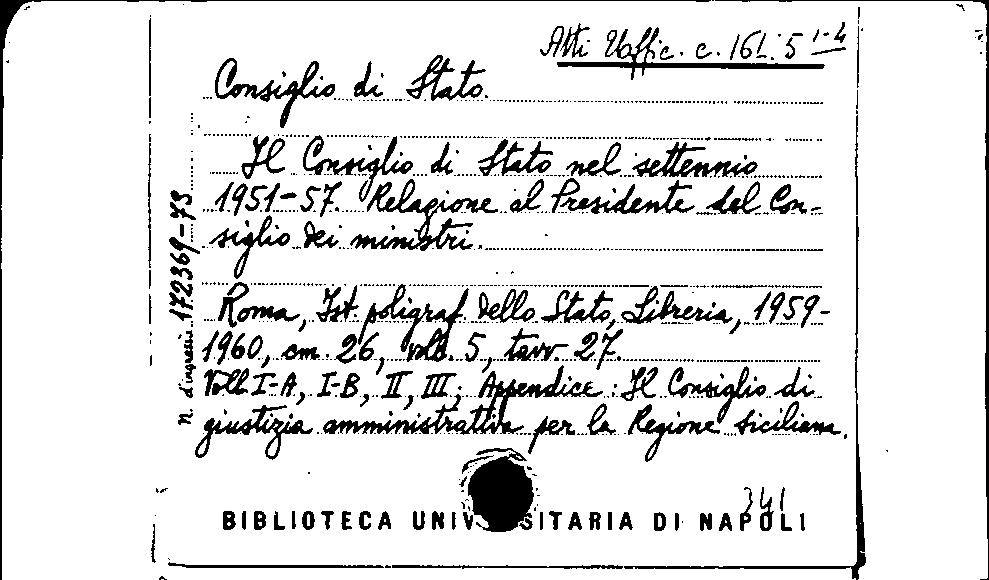 Atti Uffic. c. 161. 5 1-4
Consiglio di Stato.
Il Consiglio di Stato nel settennio
1951-57. Relazione al Presidente del Con-
siglio dei ministri.
Roma, Ist. poligraf. dello Stato, Libreria, 1959-
1960, cm. 26, voll. 5, tavv. 27.
Voll. I-A, I-B, II, III; Appendice: Il Consiglio di
giustizia amministrativa per la Regione Siciliana.
n. d'ingresso 172369-73
341
BIBLIOTECA UNIV SITARIA DI NAPOLI